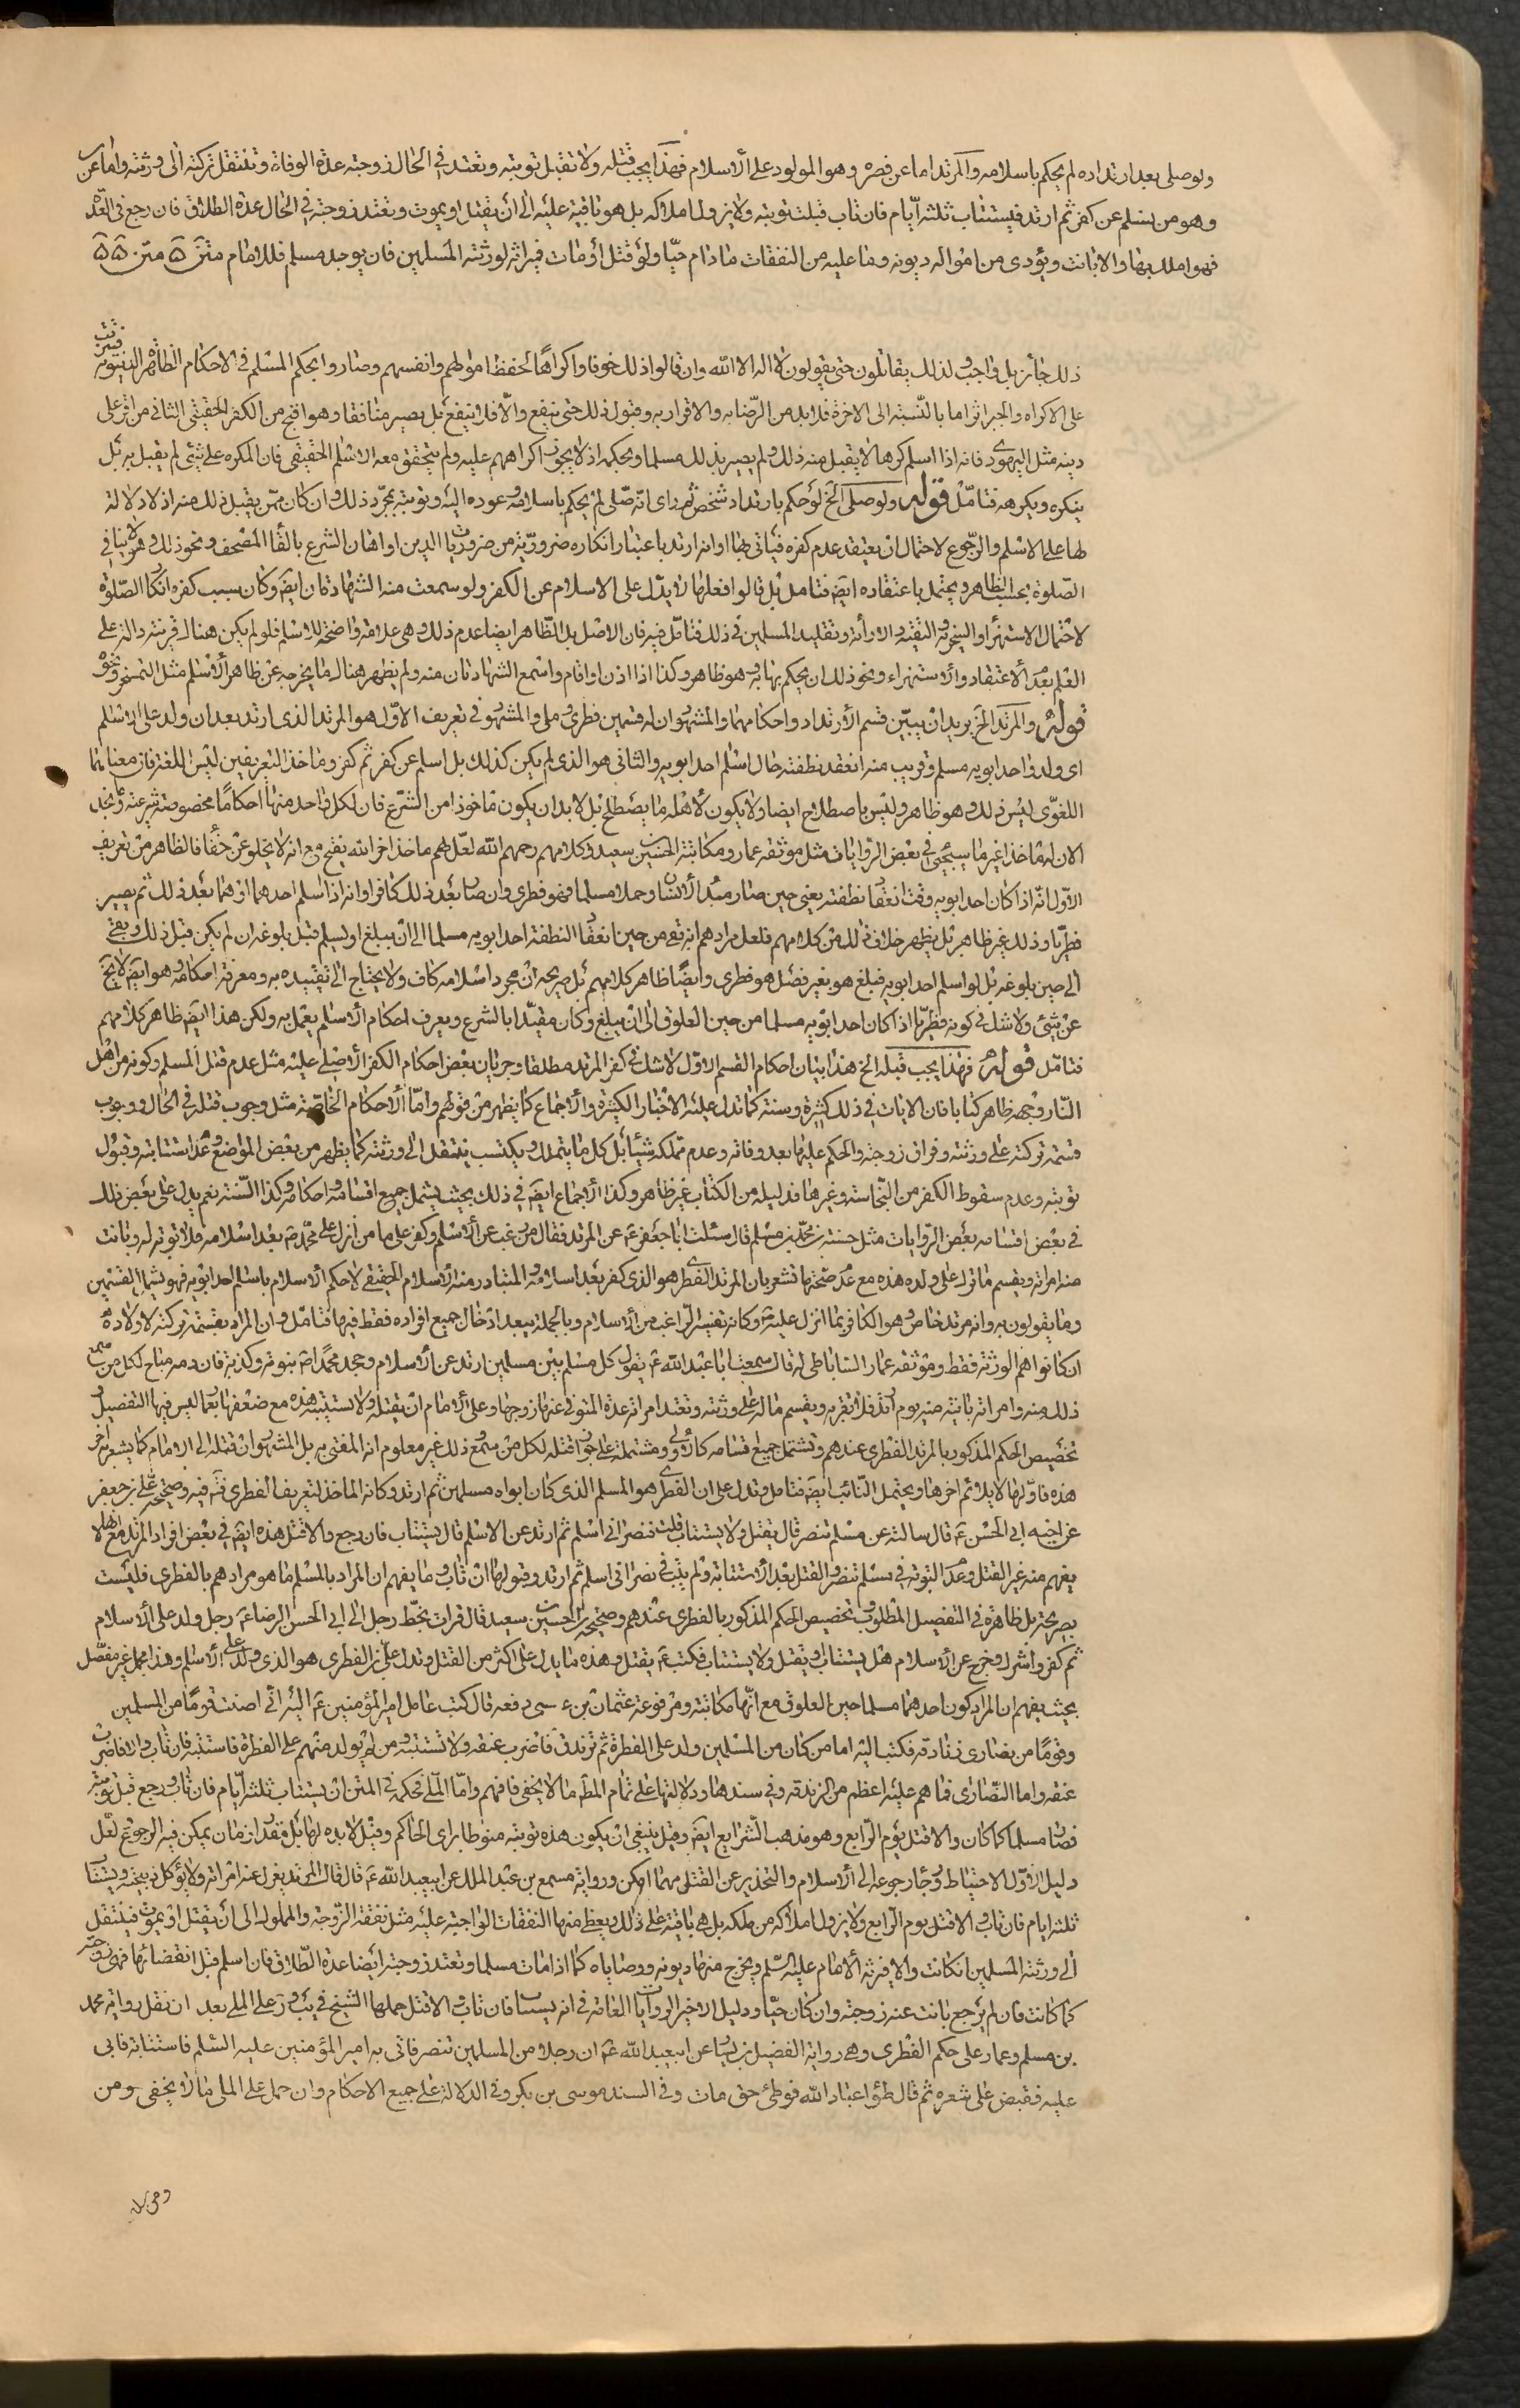 ولوصلى بعد ارتداده لم يحكم باسلامه والمرتد اما عن فطرة وهو المولود على الاسلام فهذا يجب قتله ولا تقبل توبته وتعتد في الحال زوجته عدة الوفاة وتنتقل تركته الى ورثته واما عن
وهو من يسلم عن كفر ثم ارتد فيستتاب ثلثة ايام فان تاب قبلت توبته ولا يزول املاكه بل هو باقية عليه الى ان يقتل او يموت وتعتد زوجته في الحال عدة الطلاق فان رجع في العدة
فهو املك بها والا بانت ويؤدى من امواله ديونه وما عليه من النفقات ما دام حيّا ولو قتل او مات فميراثه لورثته المسلمين فان لم يوجد مسلم فللامام متن
ذلك جائز بل واجب ولذلك يقاتلون حتى يقولون لا اله الا الله وان قالوا ذلك خوفا واكراها لحفظ اموالهم وانفسهم وصاروا بحكم المسلم في الاحكام الظاهرة الدنيوية
على الاكراه والجبر اثر اما بالنسبة الى الاخرة فلا بد من الرضا به والاقرار به وقبول ذلك حتى ينفع والا فلا ينفع بل يصير منافقا وهو اقبح من الكفر الحقيقي الثاني من اقر على
دينه مثل اليهودى فانه اذا اسلم كرها لا يقبل منه ذلك ولم يصر بذلك مسلما وبحكمه اذ لا يجوز اكراههم عليه ولم يتحقق معه الاسلم الحقيقى فان المكره على شئ لم يقبل به بل
ينكره ويكرهه فتامل قوله ولوصلى الخ لو حكم بارتداد شخص ثم راى انه صلى لم يحكم باسلامه وعوده اليه وتوبته بمجرد ذلك وان كان ممن يقبل ذلك منه اذ لا دلالة
لها على الاسلم والرجوع لاحتمال ان يعتقد عدم كفره فياتى بها او انه ارتد باعتبار انكاره ضرورية من ضروريات الدين او اهان الشرع بالقاء المصحف ونحو ذلك وهو لا ينافى
الصلوة بحسب الظاهر ويحتمل باعتقاده ايضا فتامل بل قالوا فعلها لا يدل على الاسلام عن الكفر ولو سمعت منه الشهادتان ايضا وكان سبب كفره انكار الصلوة
لاحتمال الاستهزاء والسخرية والتقية والاراءة وتقليد المسلمين في ذلك فتامل فيه فان الاصل بل الظاهر ايضا عدم ذلك وهي علامة واضحة للاسلم فلو لم يكن هناك قرينة دالة على
العلم بعد الاعتقاد والاستهزاء ونحو ذلك ان يحكم بها به وهو ظاهر وكذا اذا اذن او اقام واسمع الشهادتان منه ولم يظهر هناك ما يخرجه عن ظاهر الاسلم مثل التمسخر ونحوه
قوله والمرتد الخ يريد ان يبين قسم الارتداد واحكامهما والمشهور ان له قسمين فطرى وملى والمشهور في تعريف الاول هو المرتد الذى ارتد بعد ان ولد على الاسلم
اى ولد واحد ابويه مسلم وقريب منه انعقد نطفته حال اسلم احد ابويه والثانى هو الذى لم يكن كذلك بل اسلم عن كفر ثم كفر وماخذ التعريفين ليس اللغة فان معناهما
اللغوى ليس ذلك وهو ظاهر وليس باصطلاح ايضا ولا يكون لاهله ما يصطلح بل لا بد ان يكون ماخوذا من الشرع فان لكل واحد منهما احكاما مخصوصة شرعية ونجد
الان له ماخذا غير ما سيجيئ في بعض الروايات مثل موثقة عمار ومكاتبة الحسين بن سعيد وكلامهم رحمهم الله لعل لهم ماخذ اخر الله يفتح مع انه لا يخلو عن خفاء فالظاهر من تعريف
الاول انه اذا كان احد ابويه وقت انعقاد نطفته يعنى حين صار مبدا الانسان وحملا مسلما فهو فطرى وان صار بعد ذلك كافرا وانه اذا اسلم احدهما او هما بعد ذلك ثم يصير
فطريا وذلك غير ظاهر بل يظهر خلاف ذلك من كلامهم فلعل مرادهم انه تقع من حين انعقاد النطفة احد ابويه مسلما الى ان يبلغ او يسلم قبل بلوغه ان لم يكن قبل ذلك وبقى
الى حين بلوغه بل لو اسلم احد ابويه فبلغ هو بغير فصل هو فطرى وايضا ظاهر كلامهم بل صريحه ان مجرد اسلامه كاف ولا يحتاج الى تقييده به ومعرفة احكامه وهو ايضا لا يخ
عن شئ ولا شك في كونه فطريا اذا كان احد ابويه مسلما من حين العلوق الى ان يبلغ وكان مقيدا بالشرع ويعرف احكام الاسلم يعمل به ولكن هذا ايضا ظاهر كلامهم
فتامل قوله فهذا يجب قتله الخ هذا بيان احكام القسم الاول لا شك في كفر المرتد مطلقا وجريان بعض احكام الكفر الاصلى عليه مثل عدم قتل المسلم وكونه من اهل
النار وجهه ظاهر كتابا فان الايات في ذلك كثيرة وسنة كما تدل عليه الاخبار الكثيرة والاجماع كما يظهر من قولهم واما الاحكام الخاصة مثل وجوب قتله في الحال ووجوب
قسمة تركته على ورثته وفراق زوجته والحكم عليها بعد وفاته وعدم تملكه شيئا بل كل ما يتملك ويكتسب ينتقل الى ورثته كما يظهر من بعض المواضع وعد استتابته وقبول
توبته وعدم سقوط الكفر من النجاسة وغيرها فدليله من الكتاب غير ظاهر وكذا الاجماع ايضا في ذلك بحيث يشمل جميع اقسامه واحكامه وكذا السنة نعم يدل على بعض ذلك
في بعض اقسامه بعض الروايات مثل حسنة محمد بن مسلم قال سئلت ابا جعفر ع عن المرتد فقال من رغب عن الاسلم وكفر على ما من انزل على محمد ص بعد اسلامه فلا توبة له وبانت
منه امراته ويقسم ما ترك على ولده هذه مع عد صحتها تشعر بان المرتد الفطرى هو الذى كفر بعد اسلامه والمتبادر منه الاسلام الحقيقى لا حكم الاسلام باسلم احد ابويه فهو يشمل القسمين
وما يقولون به وانه مرتد خاص هو الكافر بما انزل عليه ص وكانه تفسير الراغب من الاسلام وبالجملة يبعد ادخال جميع افراده فقط فيها فتامل وان المراد بقسمة تركته لاولاده
ان كانوا هم الورثة فقط وموثقة عمار الساباطى له قال سمعت ابا عبد الله ع يقول كل مسلم بين مسلمين ارتد عن الاسلام وجحد محمدا ص نبوته وكذبه فان دمه مباح لكل من سمع
ذلك منه وامراته باينة منه يوم ارتد فلا تقربه ويقسم ماله على ورثته وتعتد امراته عدة المتوفى عنها زوجها وعلى الامام ان يقتله ولا يستتيبه هذه مع ضعفها بعمار ليس فيها التفصيل و
تخصيص الحكم المذكور بالمرتد الفطرى عندهم وتشتمل جميع اقسامه كالاولى ومشتملة على جواز قتله لكل من سمع ذلك غير معلوم انه المفتى به بل المشهور ان قتله الى الامام كما يشعر به اخر
هذه فاولها لا يلائم اخرها ويحتمل النائب ايضا فتامل وتدل على ان الفطرى هو المسلم الذى كان ابواه مسلمين ثم ارتد وكانه الماخذ لتعريف الفطرى فته فيه وصحيحة على بن جعفر
عن اخيه ابى الحسن ع قال سالته عن مسلم تنصر قال يقتل ولا يستتاب قلت فنصرانى اسلم ثم ارتد عن الاسلم قال يستتاب فان رجع والا قتل هذه ايضا في بعض افراد المرتد مع اهله لا
يفهم منه غير القتل وعد التوبة في مسلم تنصر والقتل بعد الاستتابة ولم يتب في نصرانى اسلم ثم ارتد وقولها ان تاب وما يفهم ان المراد بالمسلم ما هو مرادهم بالفطرى فليست
بصريحة بل ظاهرة في التفصيل المطلوب وتخصيص الحكم المذكور بالفطرى عندهم وصحيحة الحسين بن سعيد قال قرات بخط رجل الى ابى الحسن الرضا ع رجل ولد على الاسلام
ثم كفر واشرك وخرج عن الاسلام هل يستتاب او يقتل ولا يستتاب فكتب ع يقتل وهذه ما يدل على اكثر من القتل وتدل على ان الفطرى هو الذى ولد على الاسلم وهذا مجمل غير مفصل
بحيث يفهم ان المراد كون احدهما مسلما حين العلوق مع انها مكاتبة ومرفوعة عثمان بن عيسى رفعه قال كتب عامل امير المؤمنين ع اليه انى اصبت قوما من المسلمين
وقوما من نصارى زنادقة فكتب اليه اما من كان من المسلمين ولد على الفطرة ثم تزندق فاضرب عنقه ولا تستتبه ومن لم يولد منهم على الفطرة فاستتبه فان تاب والا فاضرب
عنقه واما النصارى فما هم عليه اعظم من الزندقة وفى سندها ودلالتها على تمام المط ما لا يخفى فافهم واما الملى فحكمه في المتن ان يستتاب ثلثة ايام فان تاب ورجع قبل توبته
فصار مسلما كما كان والا قتل يوم الرابع وهو مذهب الشرايع ايضا وقيل ينبغى ان يكون هذه توبته منوطا براى الحاكم وقيل لا بد لها بل مقدار زمان يمكن فيه الرجوع لعل
دليل الاول الاحتياط ورجاء رجوعه الى الاسلام والتحذير عن القتل مهما امكن ورواية مسمع بن عبد الملك عن ابيعبد الله ع قال قال المرتد يعزل عنه امراته ولا يؤكل ذبيحته ويستتاب
ثلثة ايام فان تاب والا قتل يوم الرابع ولا يزول املاكه من ملكه بل هى باقية على ذلك ويعطى منها النفقات الواجبة عليه مثل نفقة الزوجة والمملوك الى ان يقتل او يموت فينتقل
الى ورثته المسلمين ان كانت والا فيرثه الامام عليه السلم ويخرج منها ديونه ووصاياه كما اذا مات مسلما وتعتد زوجته ايضا عدة الطلاق فان اسلم قبل انقضائها فهى زوجته
كما كانت فان لم يرجع بانت عنه زوجته وان كان حيّا ودليل الاخير الروايات العامة في انه يستتاب فان تاب والا قتل حملها الشيخ في يب و ر على الملى بعد ان نقل رواية محمد
بن مسلم وعمار على حكم الفطرى وهى رواية الفضيل بن يسار عن ابيعبد الله ع ان رجلا من المسلمين تنصر فاتى به امير المؤمنين عليه السلم فاستتابه فابى
عليه فقبض على شعره ثم قال طؤا عباد الله فوطئ حتى مات وفى السند موسى بن بكر وفى الدلالة على جميع الاحكام وان حمل على الملى ما لا يخفى ومن